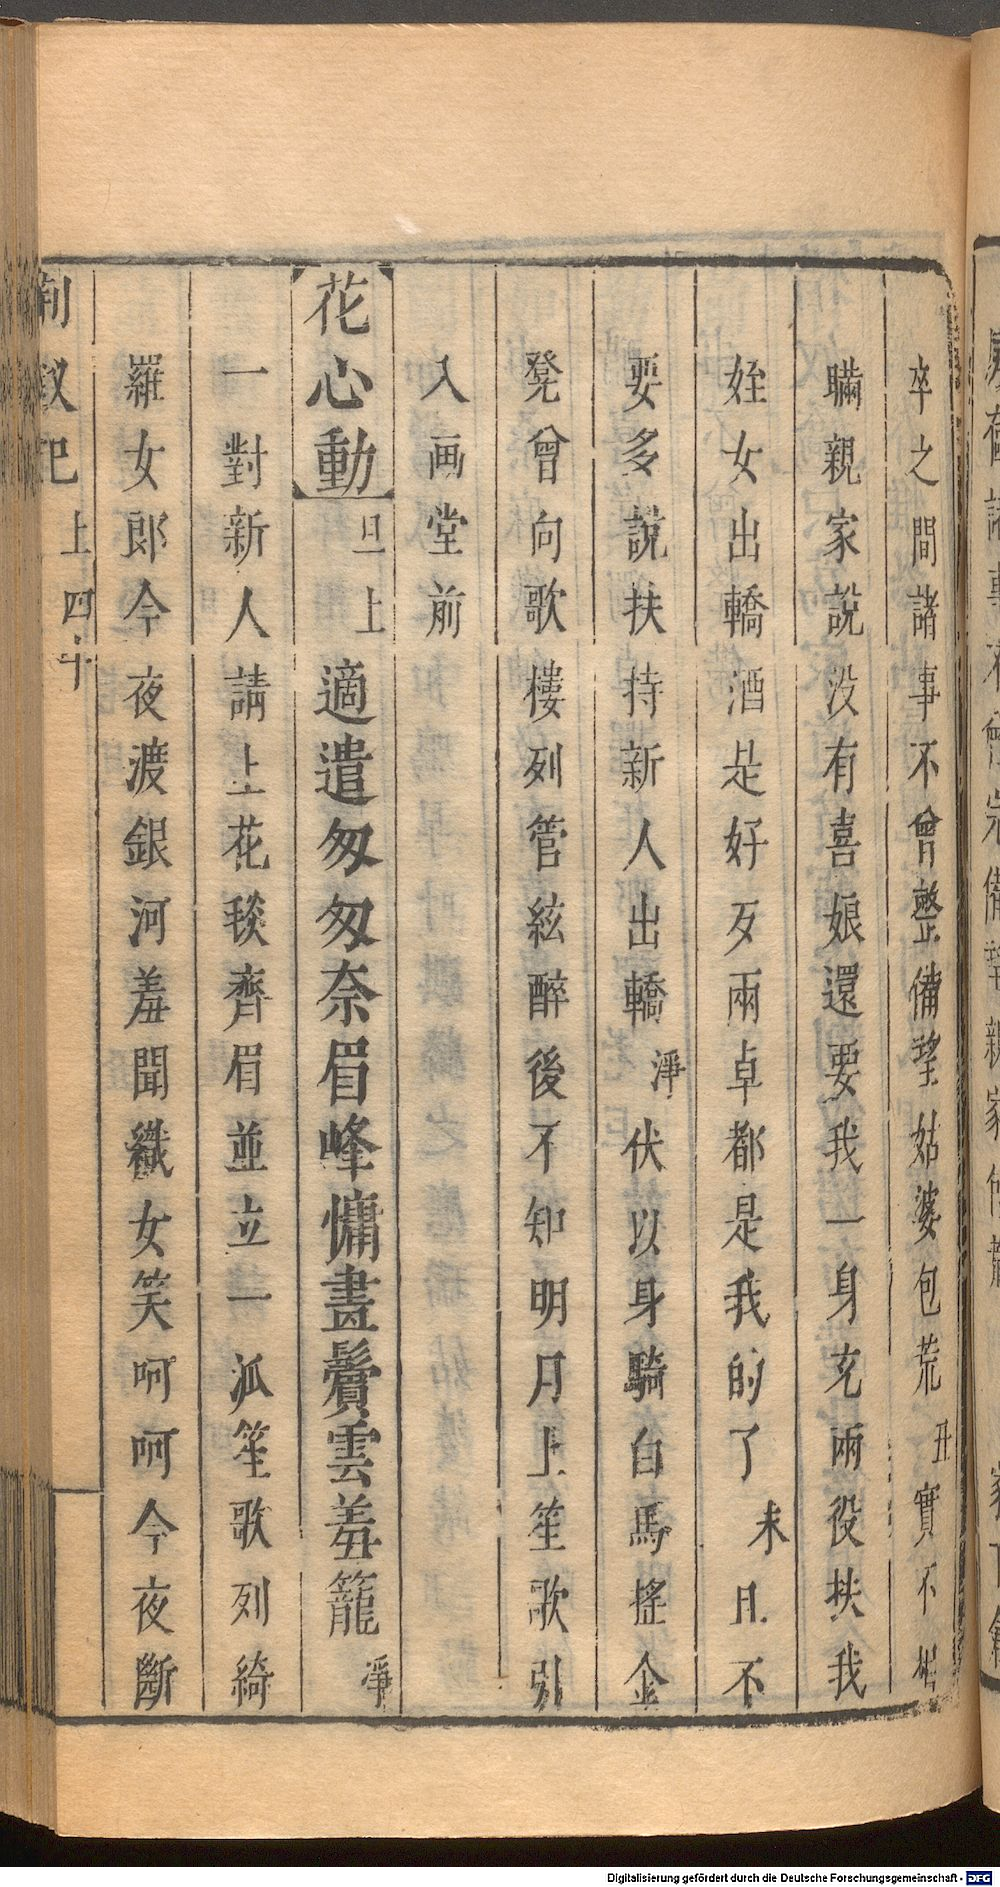 卒之間諸事不曾整備望姑婆包荒丑實不相
瞞親家說没有喜娘還要我一身充兩役扶我
姪女出轎酒是好歹兩卓都是我的了末且不
要多說扶持新人出轎淨伏以身騎白馬搖金
凳曾向歌樓列管絃醉後不知明月上笙歌引
入画堂前
花心動旦上適遣匆匆奈眉峰慵畫鬢雲羞籠淨
一對新人請上花毯齊眉並立一派笙歌列綺
羅女郎今夜渡銀河羞聞織女笑呵呵今夜斷
荆釵記上四十
Digitalisierung gefördert durch die Deutsche Forschungsgemeinschaft - DFG